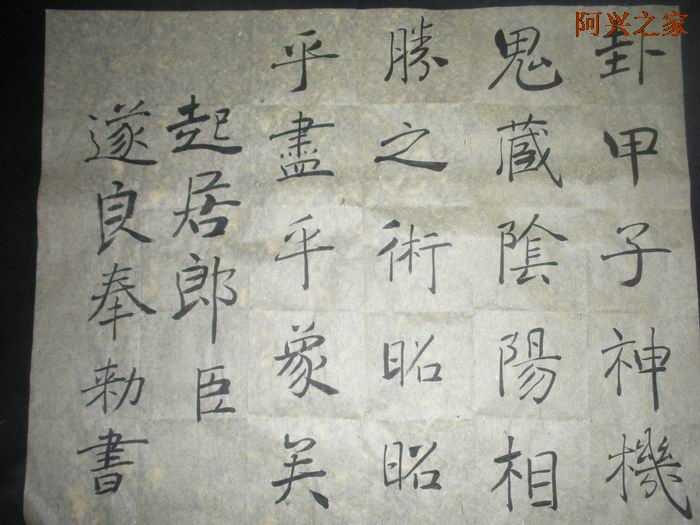 阿兴之家
卦甲子神機
鬼蔵陰陽相
勝之術昭昭
乎盡乎象矣
起居郎臣
遂良奉勅書